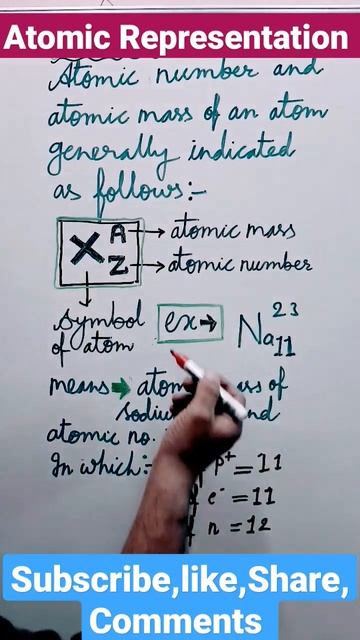 Atomic Representation
Atomic number and
atomic mass of an atom
generally indicated
as follows:-
X A → atomic mass
Z → atomic number
symbol
of atom
ex→ Na 23 11
means → of
atomic no.
In which:- p+ = 11
e- = 11
n = 12
Subscribe,like,Share,
Comments